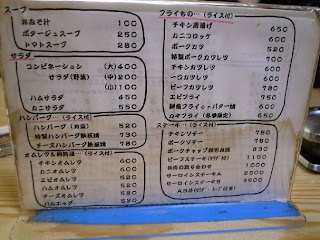 スープ
おみそ汁 100
ポタージュスープ 250
トマトスープ 280
サラダ
コンビネーション (大) 400
サラダ (野菜) (中) 200
(小) 100
ハムサラダ 450
カニサラダ 550
ハンバーグ…(ライス付)
ハンバーグ 520
特製ハンバーグ鉄板焼 730
チーズハンバーグ鉄板焼 780
オムレツ (ライス付)
チキンオムレツ 600
カニオムレツ 600
エビオムレツ 620
ハムオムレツ 520
チーズオムレツ 520
ハムエッグ 520
フライもの…(ライス付)
チキン唐揚げ 650
カニコロッケ 600
ポークカツ 520
特製ポークカツレツ 700
チキンカツレツ 600
一口カツレツ 600
ビーフカツレツ 780
エビフライ 750
鮮魚フライorバター焼 600
カキフライ (冬季限定) 650
ステーキ…(ライス付)
チキンソテー 750
ポークソテー 780
ポークチャップ鉄板焼 830
ビーフステーキ 1150
お肉の盛り合わせ 1000
サーロインステーキA 2000
サーロインステーキB 2500